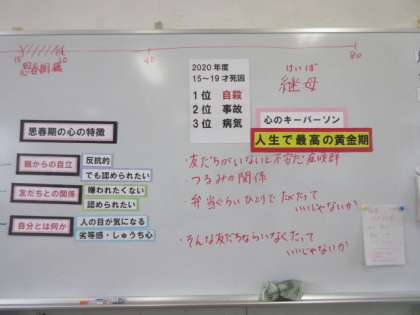 15 20 40 80
思春期
2020年度
15~19才死因
1位 自殺
2位 事故
3位 病気
けいぼ
継母
心のキーパーソン
人生で最高の黄金期
思春期の心の特徴
親からの自立
反抗的
でも認められたい
友だちとの関係
嫌われたくない
認められたい
自分とは何か
人の目が気になる
劣等感・しゅうち心
・友だちがいないと不安だ症候群
・つるみの関係
・弁当ぐらいひとりでたべたって
いいじゃないか
・そんな友だちならいなくたって
いいじゃないか